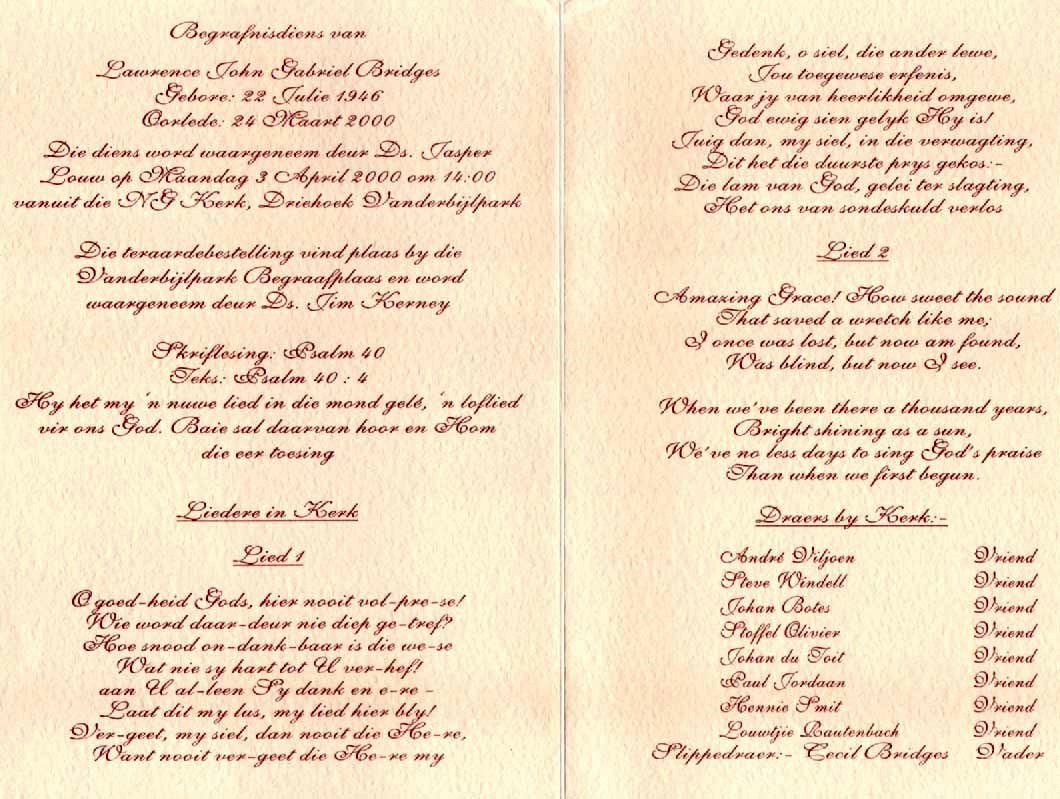 Begrafnisdiens van
Lawrence John Gabriel Bridges
Gebore: 22 Julie 1946
Oorlede: 24 Maart 2000
Die diens word waargeneem deur Ds. Jasper
Louw op Maandag 3 April 2000 om 14:00
vanuit die NG Kerk, Driehoek Vanderbijlpark
Die teraardebestelling vind plaas by die
Vanderbijlpark Begraafplaas en word
waargeneem deur Ds. Jim Kerney
Skriflesing: Psalm 40
Teks: Psalm 40 : 4
Hy het my 'n nuwe lied in die mond gelê, 'n loflied
vir ons God. Baie sal daarvan hoor en Hom
die eer toesing
Liedere in Kerk
Lied 1
O goed-heid Gods, hier nooit vol-pre-se!
Wie word daar-deur nie diep ge-tref?
Hoe snood on-dank-baar is die we-se
Wat nie sy hart tot U ver-hef!
aan U al-leen Sy dank en e-re -
Laat dit my lus, my lied hier bly!
Ver-geet, my siel, dan nooit die He-re,
Want nooit ver-geet die He-re my
Gedenk, o siel, die ander lewe,
Jou toegewese erfenis,
Waar jy van heerlikheid omgewe,
God ewig sien gelyk Hy is!
Juig dan, my siel, in die verwagting,
Dit het die duurste prys gekos:-
Die lam van God, gelei ter slagting,
Het ons van sondeskuld verlos
Lied 2
Amazing Grace! How sweet the sound
That saved a wretch like me;
I once was lost, but now am found,
Was blind, but now I see.
When we've been there a thousand years,
Bright shining as a sun,
We've no less days to sing God's praise
Than when we first begun.
Draers by Kerk:-
André Viljoen Vriend
Steve Windell Vriend
Johan Botes Vriend
Stoffel Olivier Vriend
Johan du Toit Vriend
Paul Jordaan Vriend
Hennie Smit Vriend
Louwtjie Rautenbach Vriend
Slippedraer:- Cecil Bridges Vader